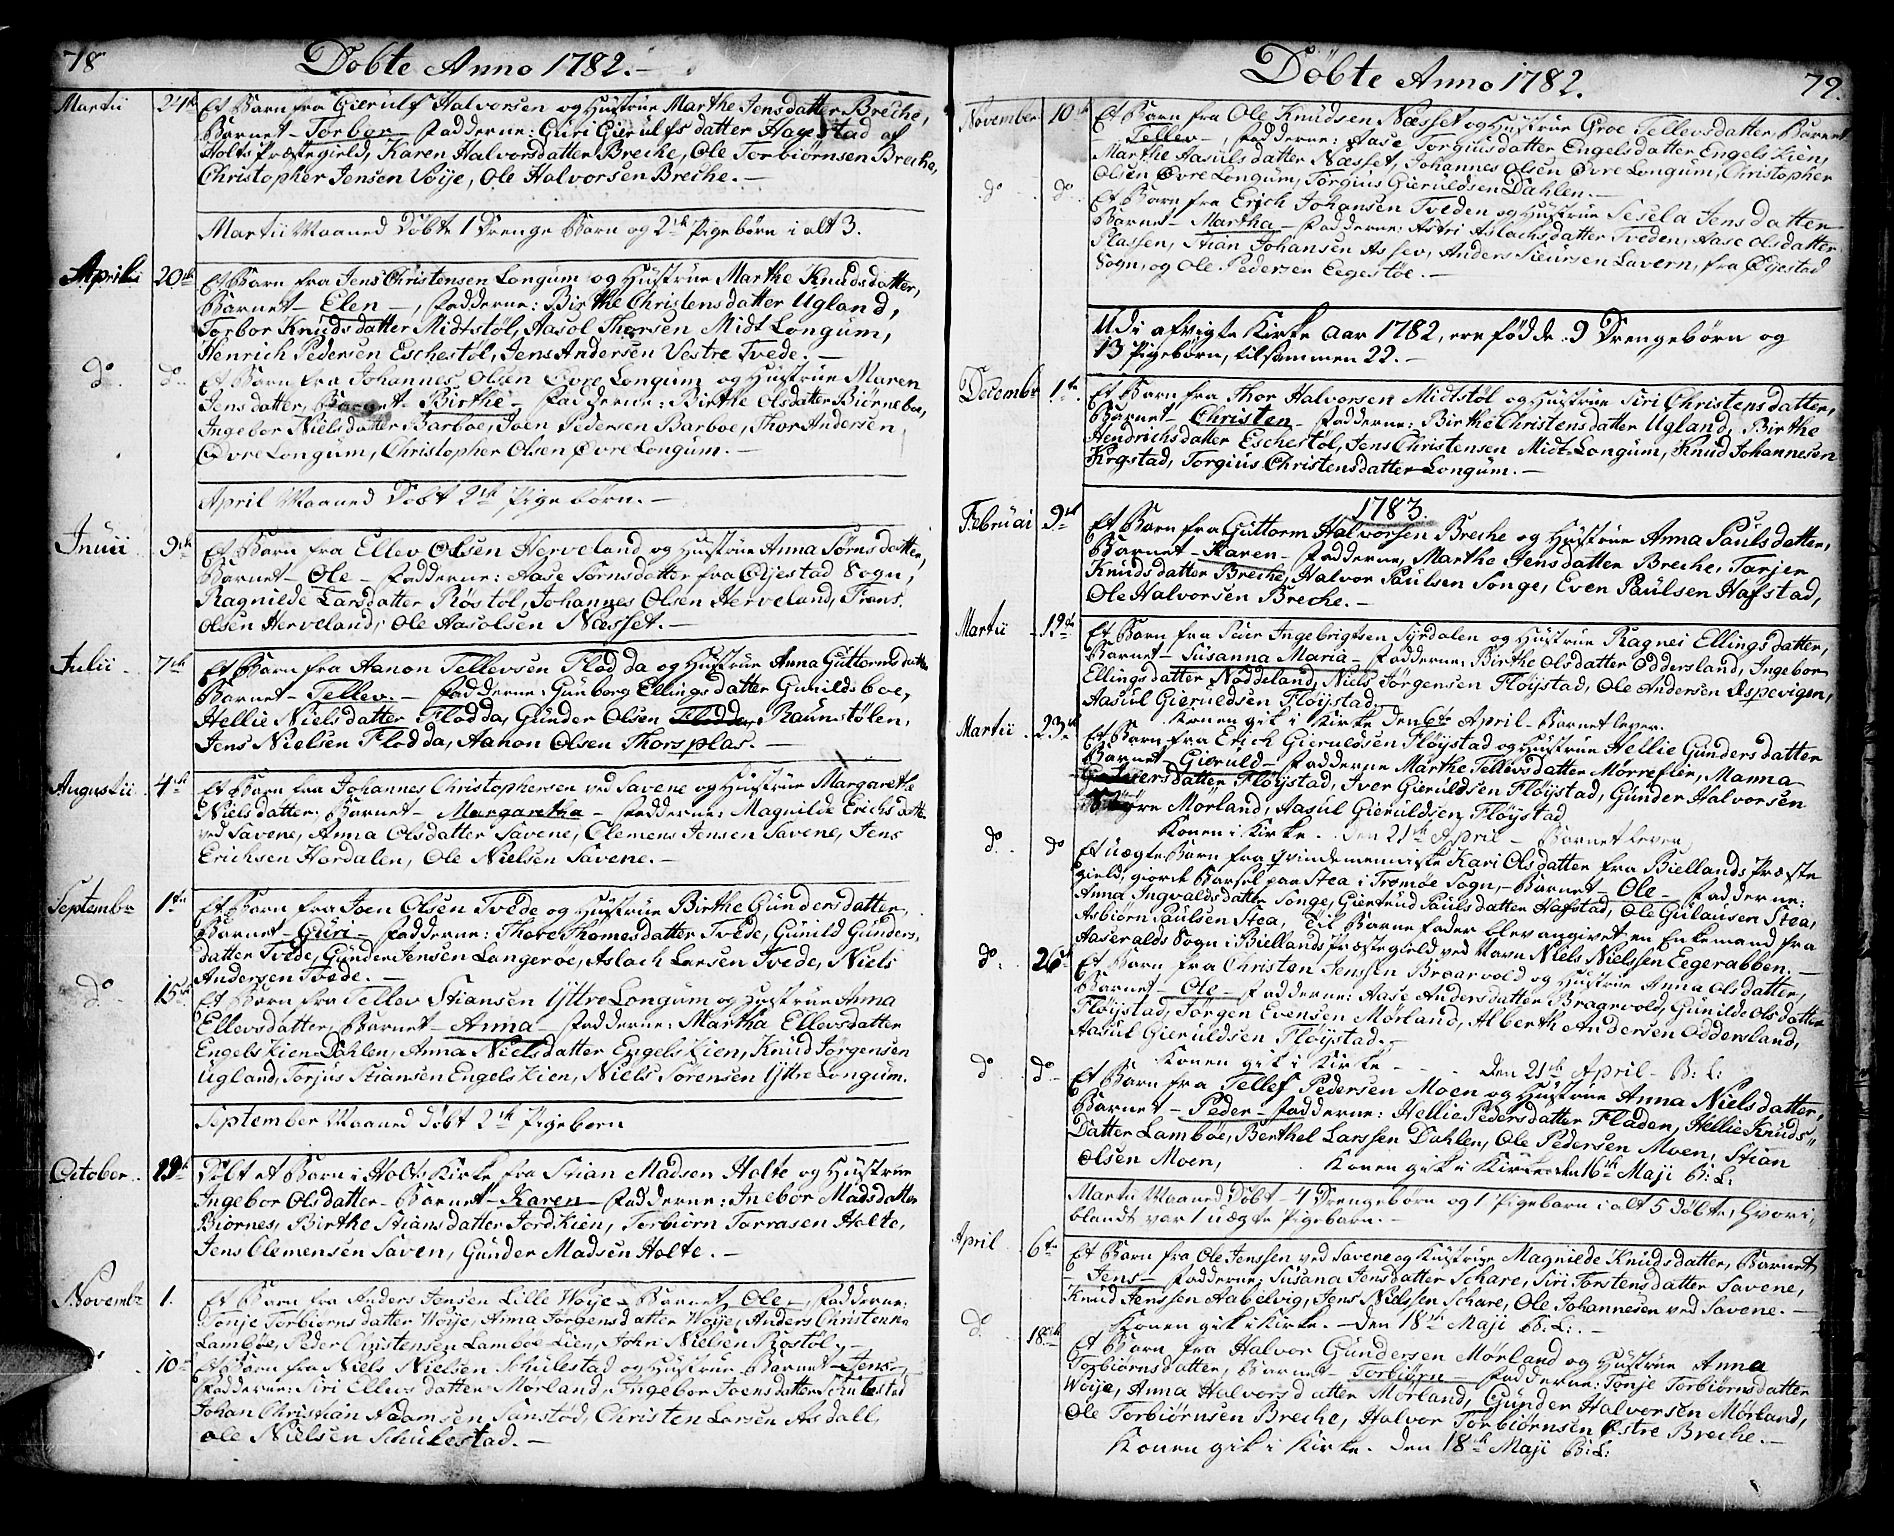 78
Döbte Anno 1782.-
Martii 24de Et Barn fra Gierulf Halvorsen og Hustrue Marthe Jensdatter Breche,
Barnet- Torbor- Fadderne: Guri Gierulfsdatter Hagestad af
Holts Præstegield, Karen Halvorsdatter Breche, Ole Torbiørnsen Breche,
Christopher Jensen Voije, Ole Halvorsen Breche.-
Martii Maaned Döbte 1 Drenge Barn og 2de Pigebörn i alt 3.
Aprilii 20de Et Barn fra Jens Christensen Longum og Hustrue Marthe Knudsdatter,
Barnet- Elen-, Fadderne: Birthe Christensdatter Ugland,
Torbor Knudsdatter Midtstöl, Aasol Thorsen Midt Longum,
Henrich Pedersen Eschestöl, Jens Andersen Vestre Tvede.-
do. do. Et Barn fra Johannes Olsen Øvre Longum og Hustrue Maren
Jensdatter, Barnet- Birthe- Fadderne: Birthe Olsdatter Biörneboe,
Ingebor Nielsdatter Barboe, Joen Pedersen Barboe, Thor Andersen
Øvre Longum, Christopher Olsen Øvre Longum.-
April Maaned Döbt 2de Pigebörn.-
Junii 9de Et Barn fra Ellev Olsen Herveland og Hustrue Anna Sörnsdatter,
Barnet- Ole- Fadderne: Aase Sörnsdatter fra Øjestad Sogn,
Ragnilde Larsdatter Röstöl, Johannes Olsen Herveland, Frans
Olsen Herveland, Ole Aasolsen Næsset.-
Julii 7de Et Barn fra Aanon Tellevsen Flodda og Hustrue Anna Guttormsdatter
Barnet- Tellev.- Fadderne: Gunborg Ellingsdatter Gunildsboe,
Hellie Nielsdatter Flodda, Gunder Olsen Flodda, Raunstölen,
Jens Nielsen Flodda, Aanon Olsen Thorsplas.-
Augustii 4de Et Barn fra Johannes Christophersen ved Savene og Hustrue Margarethe
Nielsdatter, Barnet- Margaretha- Fadderne: Magnilde Erichsdatt.
ved Savene, Anna Olsdatter Savene, Clemens Jensen Savene, Jens
Erichsen Hordalen, Ole Nielsen Savene.-
Septembr 1te Et Barn fra Joen Olsen Tvede og Hustrue Birthe Gundersdatter,
Barnet- Guri- Fadderne: Thore Thomesdatter Tvede, Gunild Gunders,
datter Tvede, Gunder Jensen Langeroe, Aslach Larsen Tvede, Niels
Andersen Tvede.-
do 15de Et Barn fra Tellev Stiansen Yttre Longum og Hustrue Anna
Ellevsdatter, Barnet- Anna- Fadderne: Martha Ellevsdatter
Engelskien Dahlen, Anna Nielsdatter Engelskien, Knud Jörgensen
Ugland, Torjus Stiansen Engelskien, Niels Sörensen Yttre Longum.
September Maaned döbt 2de Pigebörn
October. 19de Döbt et Barn i Holt Kirke fra Stian Madsen Holte og Hustrue
Ingebor Olsdatter- Barnet- Karen- Fadderne: Inebor Madsdatter
Biornes, Birthe Stiansdatter Jordkien, Torbiörn Torrasen Holte,
Jens Clemensen Saven, Gunder Madsen Holte.-
Novembr 1. Et Barn fra Anders Jensen Lille Woije- Barnet Ole-, Fadderne:
Tonje Torbiörnsdatter Woije, Anna Jørgensdatter Woije, Anders Christenne
Lamböe, Peder Christensen Lamböe Lien, John Nielsen Röstöl.-
10de Et Barn fra Niels Nielsen Schulestad og Hustrue Barnet- Jens-
Fadderne: Siri Ellevsdatter Mörland, Ingebor Joensdatter Schulestad
Johan Christian Adamsen Sanstöd, Christen Larsen Asdall,
Ole Nielsen Schulestad.-
Döbte Anno 1782. 79.
November 10de Et Barn fra Ole Knudsen Næsset og Hustrue Groe Tellevsdatter, Barnet
- Tellev-, Fadderne: Aase Torgiusdatter Engelsdatter Engelskien,
Marthe Aasulsdatter Næsset, Johannes Olsen Øvre Longum, Christopher
Olsen Øvre Longum, Torgius Gieruldsen Dahlen.-
do. do. Et Barn fra Erich Johansen Tveden og Hustrue Sesela Jensdatter
Barnet- Martha- Fadderne: Astri Aslachsdatter Tveden, Aase Olsdatter
Plassen, Stian Johansen Assev, Anders Siursen Lavern, fra Øyestad
Sogn, og Ole Pedersen Eegestöe.-
Udi afvigte Kirke Aar 1782, ere födde 9 Drengebörn og
13 Pigebörn, tilsammen 22.-
Decembr 1te Et Barn fra Thor Halvorsen Midtstöl og Hustrue Siri Christensdatter,
Barnet- Christen- Fadderne: Birthe Christensdatter Ugland, Birthe
Hendrichsdatter Eschestöl, Jens Christensen Midt-Longum, Knud Johannesen
Krgstad, Torgius Christensdatter Longum.-
1783.
Februai 9de Et Barn fra Guttorm Halvorsen Breche og Hustrue Anna Paulsdatter,
Barnet- Karen- Fadderne, Marthe Jensdatter Breche, Torjer
Knudsdatter Breche, Halvor Paulsen Songe, Even Paulsen Hafstad,
Ole Halvorsen Breche.-
Martii 19de Et Barn fra Siur Ingebrigtsen Syrdalen og Hustrue Ragnei Ellingsdatter,
Barnet- Susanna Maria- Fadderne: Birthe Olsdatter Oddersland, Ingebor
Ellingsdatter Noddeland, Niels Jørgensen Flöijstad, Ole Andersen Aspevigen,
Aasul Gieruldsen Flöijstad.
Konen gik i Kirke den 6te April- Barnet lever.
Martii 23de Et Barn fra Erich Gieruldsen Flöijstad og Hustrue Hellie Gundersdatter
Barnet- Gieruld- Fadderne Marthe Tellevsdatter Mörrefier, Manna
Iversdatter Flöijstad, Iver Gieruldsen Flöijstad, Gunder Halvorsen
Mörland, Aasul Gieruldsen Flöijstad
Konen i Kirke.. den 21de April- Barnet lever
do. do Et uægte Barn fra Qvindemenniske Kari Olsdatter fra Biellands Præste
gield, giordt Barsel paa Stea i Tromöe Sogn,- Barnet- Ole- Fadderne:
Anna Ingvaldsdatter Songe, Giertrud Paulsdatter Hafstad, Ole Gulausen Stea,
Asbiörn Paulsen Stea, Til Barne fader blev angivet en Enkemand fra
Aaseralds Sogn i Biellands Præstegield ved Navn Niels Nielssen Eegerabben.-
do. 26de Et Barn fra Christen Jenssen Braarvold og Hustrue Anna Olsdatter,
Barnet- Ole- Fadderne: Aase Andersdatter Bragevold, Gunilde Olsdatter
Flöijstad, Jörgen Evensen Mörland, Alberth Andersen Oddersland,
Aasul Gieruldsen Flöijstad.-
Konen gik i Kirke - - - den 21de April- B: L:
do do Et Barn fra Tellef Pedersen Moen og Hustrue Anna Nielsdatter,
Barnet- Peder- Fadderne: Hellie Pedersdatter Fladen, Hellie Knuds"
Datter Lamböe, Berthel Larssen Dahlen, Ole Pedersen Moen, Stian
Olsen Moen, Konen gik i Kirke den 16de Maji B: L:
Martii Maaned Döbt- 4 Drengebörn og 1 Pigebarn i alt 5 döbte, hvori,
blandt var 1 uægte Pigebarn.-
April 6te Et Barn fra Ole Jenssen ved Savene og Hustrue Magnilde Knudsdatter, Barnet
- Jens- Fadderne: Susana Jensdatter Schare, Siri Torstensdatter Savene,
Knud Jenssen Aabelvig, Jens Nielssen Schare, Ole Johannesen ved Savene.-
Konen gik i Kirke.- den 18de Maji B: L:.-
do. 18de Et Barn fra Halvor Gundersen Mörland og Hustrue Anna
Torbiörnsdatter, Barnet- Torbiörn- Fadderne: Tonje Torbiörnsdatter
Woije, Anna Halvorsdatter Mörland, Gunder Halvorsen Mörland,
Ole Torbiörnsen Breche, Halvor Torbiörnsen Østre Breche.-
Konen gik i Kirke. den 18de Maji B: L: